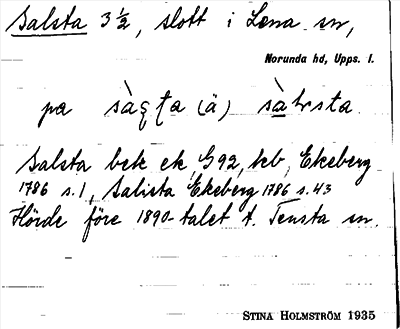 Salsta 3 ½, slott i Lena sn,
Norunda hd, Upps. l.
pa sàqṭa (ä) sàɫsta
Salsta bek ek, G92, kb, Ekeberg
1786 s. 1, Salista Ekeberg 1786 s. 43
Hörde före 1890-talet t. Tensta sn.
STINA HOLMSTRÖM 1935